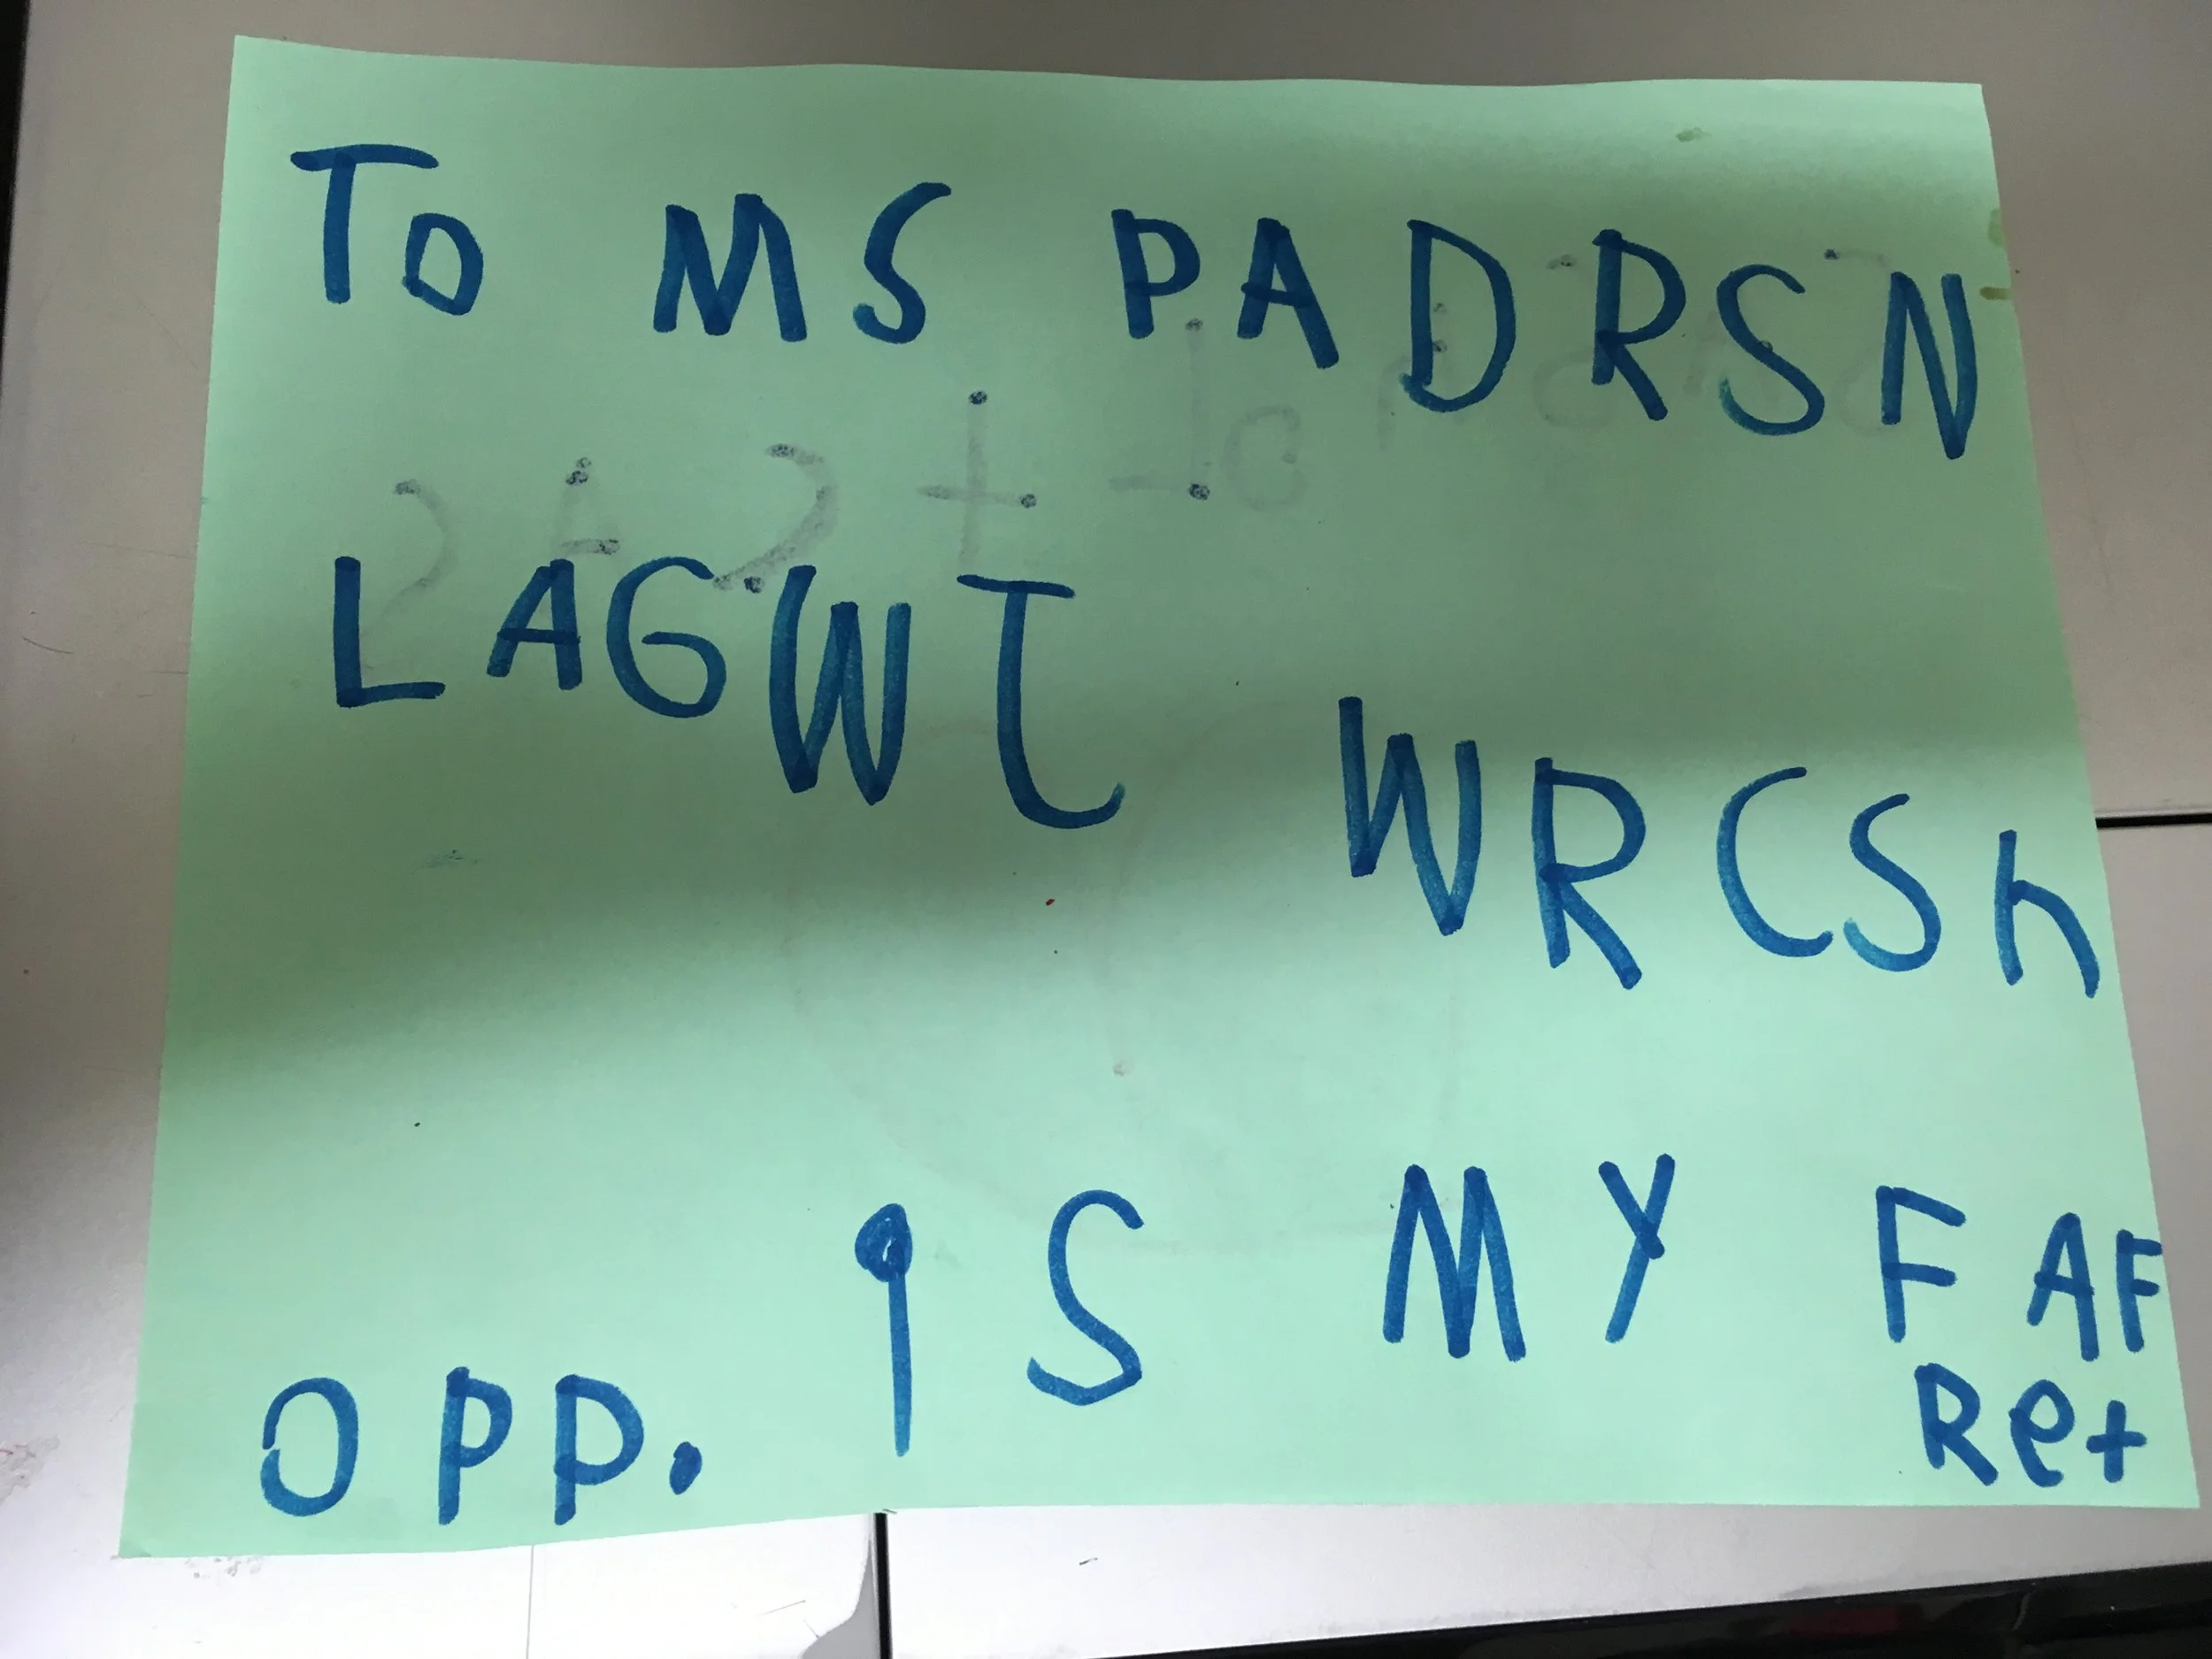 To MS PADRSN
LAGWT WRCSh
OPP. IS MY FAF
Ret